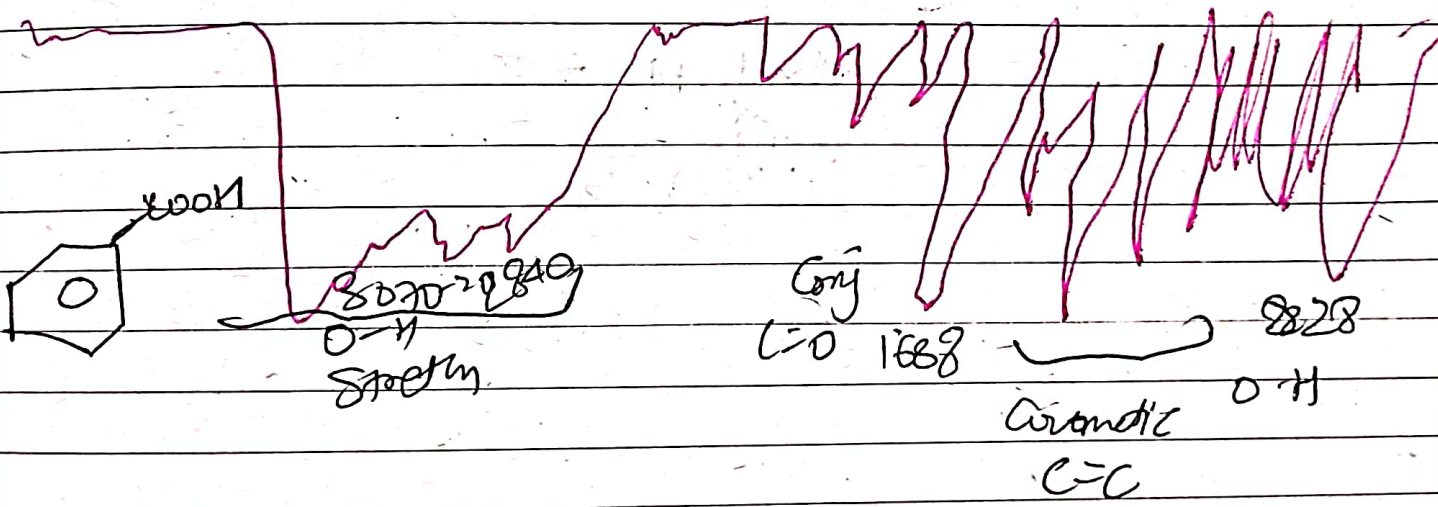 COOH
3070-2840
O-H
Stretchn
Conj
C=O 1688
Aromatic
C=C
O-H